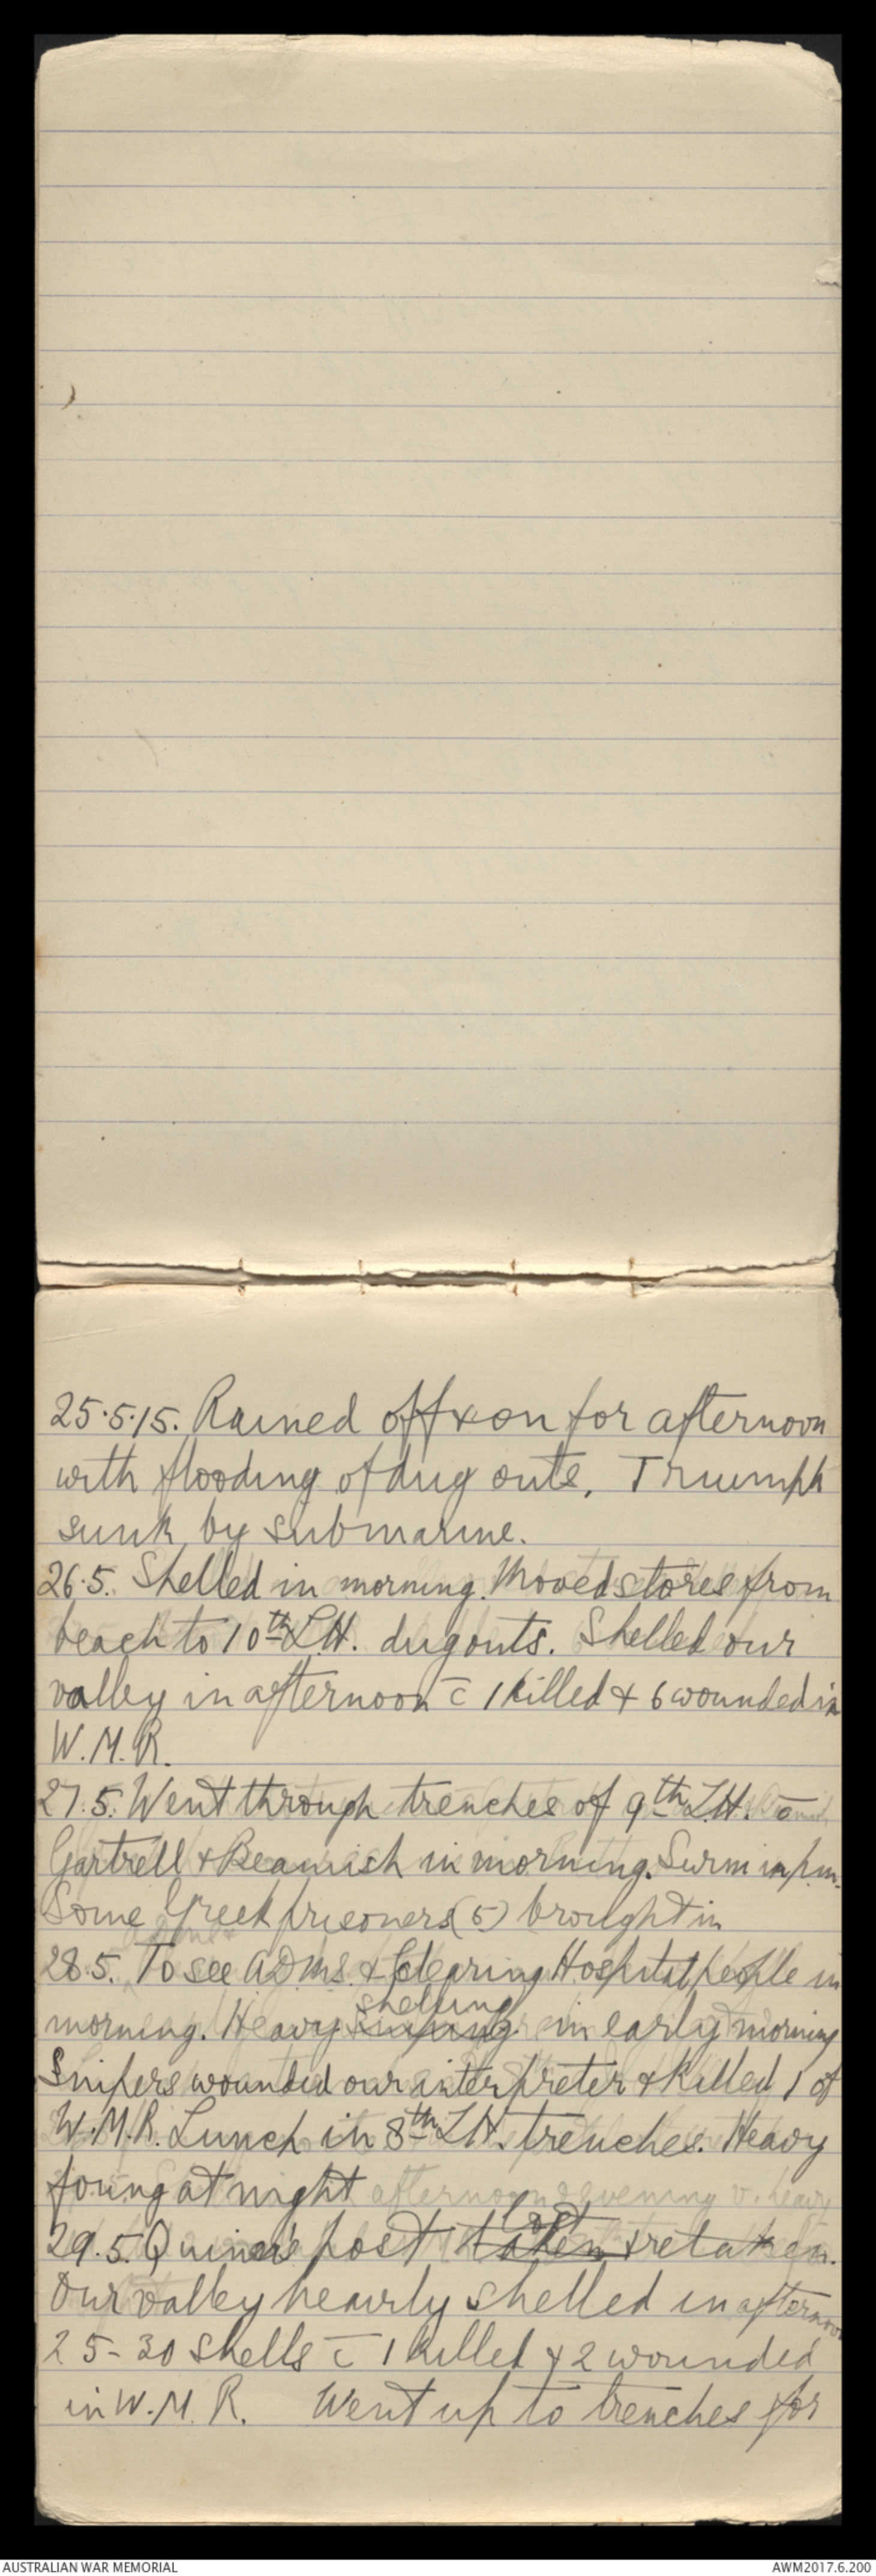 25.5.15. Rained off & on for afternoon
with flooding of dug outs. Triumph
sunk by submarine.
26.5. Shelled in morning. Moved stores from
beach to 10th L.H. dugouts. Shelled our
valley in afternoon c̄ 1 killed & 6 wounded in
W.M.R.
27.5. Went through trenches of 9th L.H. c̄
Gartrell & Beamish in morning. Swim in p.m.
Some Greek prisoners (5) brought in
28.5. To see ADMS. & Clearing Hospital people in
morning. Heavy sniping shelling in early morning
Snipers wounded our interpreter & killed 1 of
W.M.R. Lunch in 8th L.H. trenches. Heavy
firing at night
29.5. Quinn's post taken lost & retaken.
Our valley heavily shelled in afternoon
25-30 shells c̄ 1 killed & 2 wounded
in W.M.R. Went up to trenches for
AUSTRALIAN WAR MEMORIAL
AWM2017.6.200